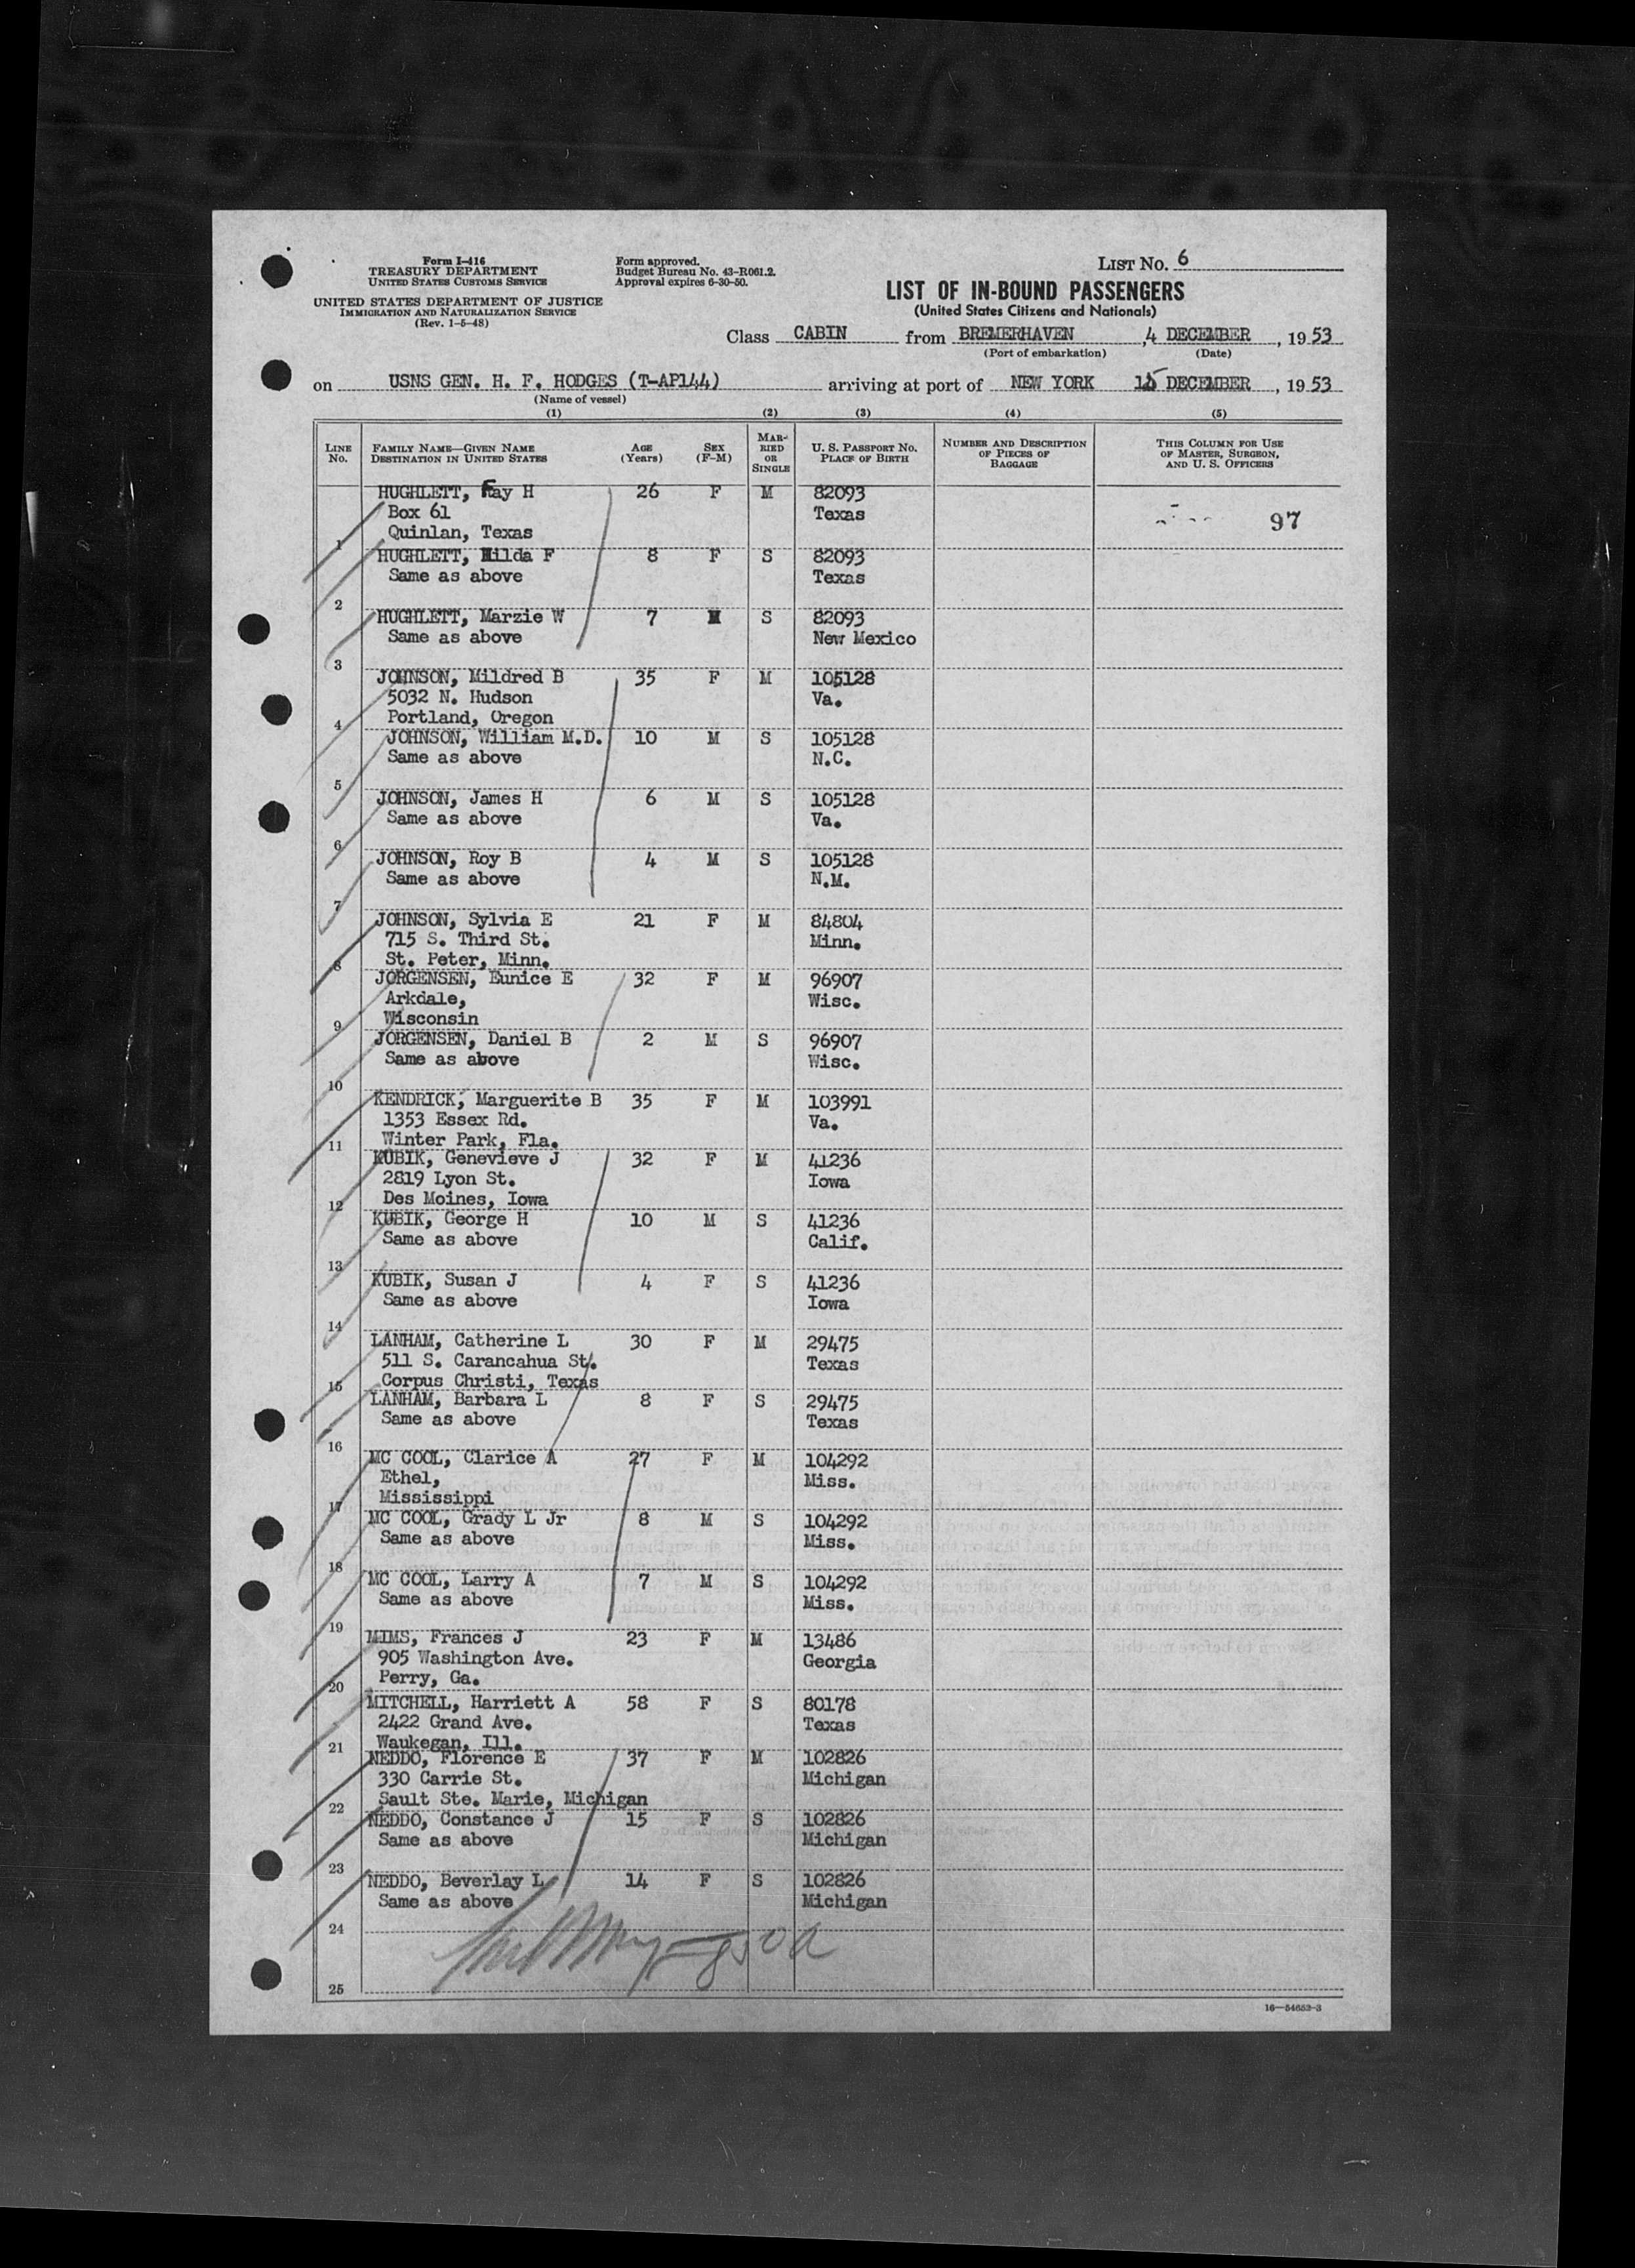 Form I-416
TREASURY DEPARTMENT
UNITED STATES CUSTOMS SERVICE
UNITED STATES DEPARTMENT OF JUSTICE
IMMIGRATION AND NATURALIZATION SERVICE
(Rev. 1-5-48)
Form approved.
Budget Bureau No. 43-R061.2.
Approval expires 6-30-50.
LIST NO. 6
LIST OF IN-BOUND PASSENGERS
(United States Citizens and Nationals)
Class CABIN from BREMERHAVEN, 4 DECEMBER, 19 53
(Port of embarkation) (Date)
on USNS GEN. H. F. HODGES (T-AP144) arriving at port of NEW YORK 15 DECEMBER, 19 53
(Name of vessel)
(1) (2) (3) (4) (5)
LINE NO. FAMILY NAME—GIVEN NAME DESTINATION IN UNITED STATES AGE (Years) SEX (F-M) MARRIED OR SINGLE U. S. PASSPORT NO. PLACE OF BIRTH NUMBER AND DESCRIPTION OF PIECES OF BAGGAGE THIS COLUMN FOR USE OF MASTER, SURGEON, AND U. S. OFFICERS
HUGHLETT, Fay H 26 F M 82093
Box 61 Texas
97
1 Quinlan, Texas
HUGHLETT, Hilda F 8 F S 82093
Same as above Texas
2
HUGHLETT, Marzie W 7 M S 82093
Same as above New Mexico
3
JOHNSON, Mildred B 35 F M 105128
5032 N. Hudson Va.
4 Portland, Oregon
JOHNSON, William M.D. 10 M S 105128
Same as above N.C.
5
JOHNSON, James H 6 M S 105128
Same as above Va.
6
JOHNSON, Roy B 4 M S 105128
Same as above N.M.
7
JOHNSON, Sylvia E 21 F M 84804
715 S. Third St. Minn.
8 St. Peter, Minn.
JORGENSEN, Eunice E 32 F M 96907
Arkdale, Wisc.
9 Wisconsin
JORGENSEN, Daniel B 2 M S 96907
Same as above Wisc.
10
KENDRICK, Marguerite B 35 F M 103991
1353 Essex Rd. Va.
11 Winter Park, Fla.
KUBIK, Genevieve J 32 F M 41236
2819 Lyon St. Iowa
12 Des Moines, Iowa
KUBIK, George H 10 M S 41236
Same as above Calif.
13
KUBIK, Susan J 4 F S 41236
Same as above Iowa
14
LANHAM, Catherine L 30 F M 29475
511 S. Carancahua St. Texas
15 Corpus Christi, Texas
LANHAM, Barbara L 8 F S 29475
Same as above Texas
16
MC COOL, Clarice A 27 F M 104292
Ethel, Miss.
17 Mississippi
MC COOL, Grady L Jr 8 M S 104292
Same as above Miss.
18
MC COOL, Larry A 7 M S 104292
Same as above Miss.
19
MIMS, Frances J 23 F M 13486
905 Washington Ave. Georgia
20 Perry, Ga.
MITCHELL, Harriett A 58 F S 80178
2422 Grand Ave. Texas
21 Waukegan, Ill.
NEDDO, Florence E 37 F M 102826
330 Carrie St. Michigan
22 Sault Ste. Marie, Michigan
NEDDO, Constance J 15 F S 102826
Same as above Michigan
23
NEDDO, Beverlay L 14 F S 102826
Same as above Michigan
24
25
16—54652-3